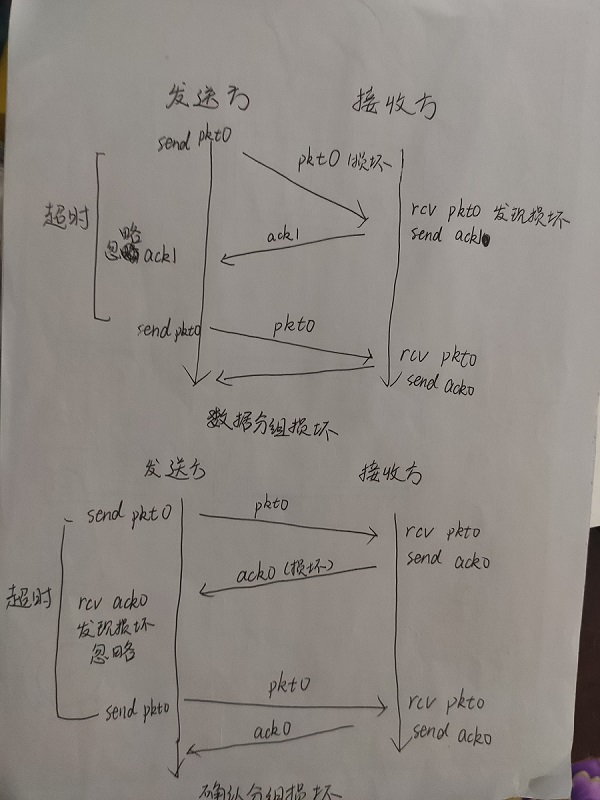 发送方 接收方
send pkt0
pkt0 损坏
超时
rcv pkt0 发现损坏
send ack1
ack1
忽略 ack1
send pkt0
pkt0
rcv pkt0
send ack0
数据分组损坏
发送方 接收方
send pkt0
pkt0
rcv pkt0
send ack0
ack0(损坏)
超时
rcv ack0
发现损坏
忽略
send pkt0
pkt0
rcv pkt0
send ack0
ack0
确认分组损坏